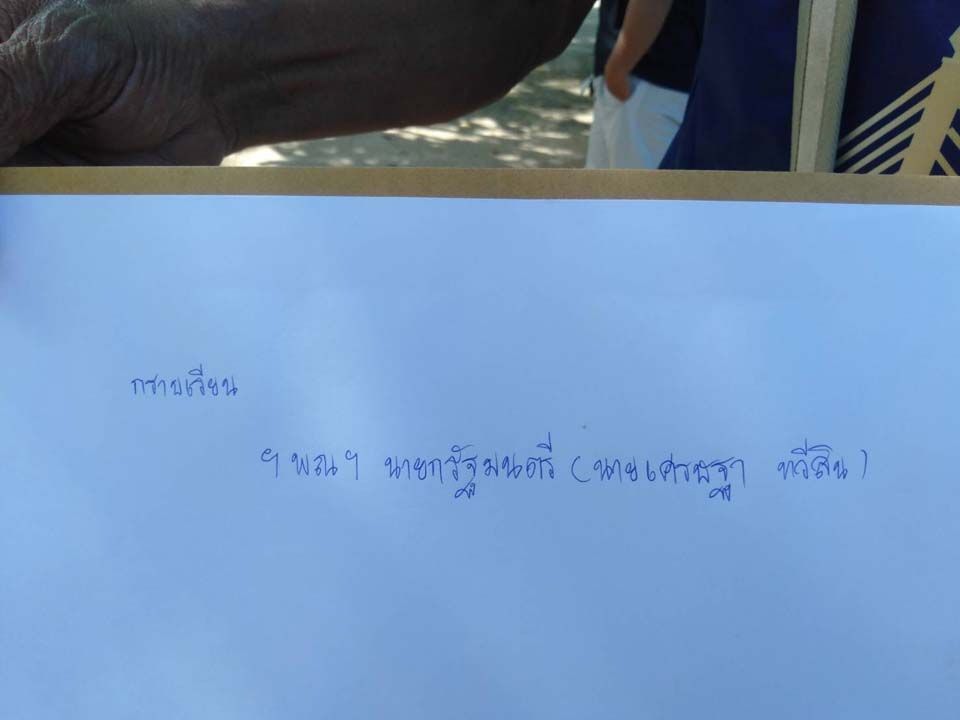 กราบเรียน
ฯพณฯ นายกรัฐมนตรี (นายเศรษฐา ทวีสิน)